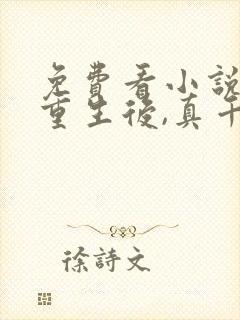 免費看小說
重生後,真千
徐詩文